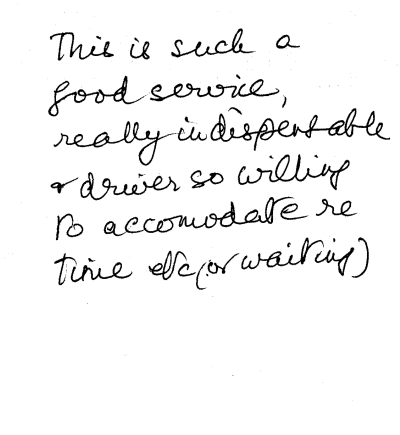 This is such a
good service,
really indispensable
& driver so willing
to accomodate re
time etc (or waiting)